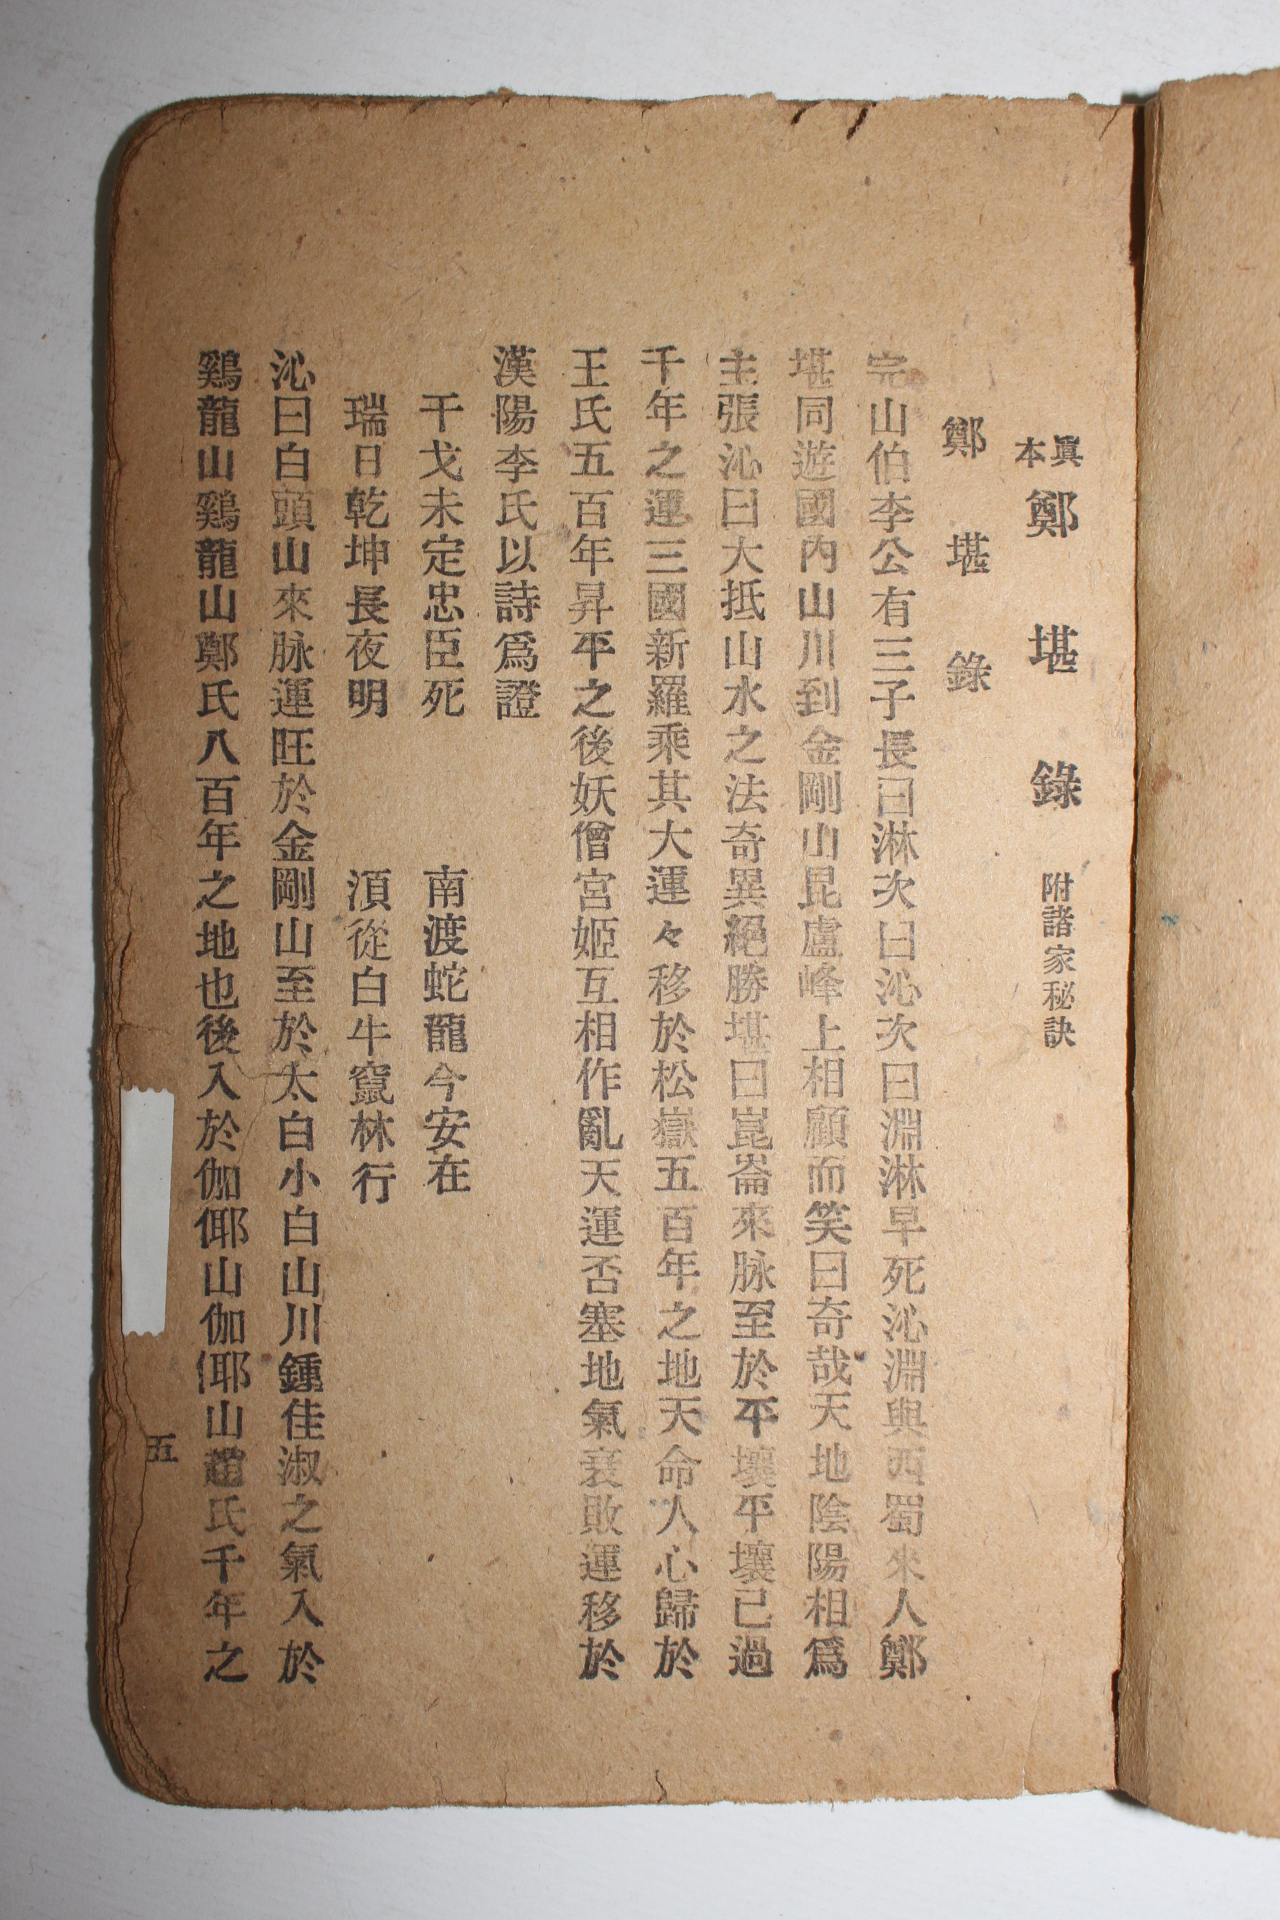 眞本 鄭堪錄 附諸家秘訣
鄭堪錄
完山伯李公有三子長曰淋次曰沁次曰淵淋早死沁淵與西蜀來人鄭
堪同遊國內山川到金剛山昆盧峰上相顧而笑曰奇哉天地陰陽相爲
主張沁曰大抵山水之法奇異絕勝堪曰崑崙來脉至於平壤平壤已過
千年之運三國新羅乘其大運々移於松嶽五百年之地天命人心歸於
王氏五百年昇平之後妖僧宮姬互相作亂天運否塞地氣衰敗運移於
漢陽李氏以詩爲證
干戈未定忠臣死 南渡蛇龍今安在
瑞日乾坤長夜明 湏從白牛竄林行
沁曰白頭山來脉運旺於金剛山至於太白小白山川鍾佳淑之氣入於
鷄龍山鷄龍山鄭氏八百年之地也後入於伽倻山伽倻山趙氏千年之
五